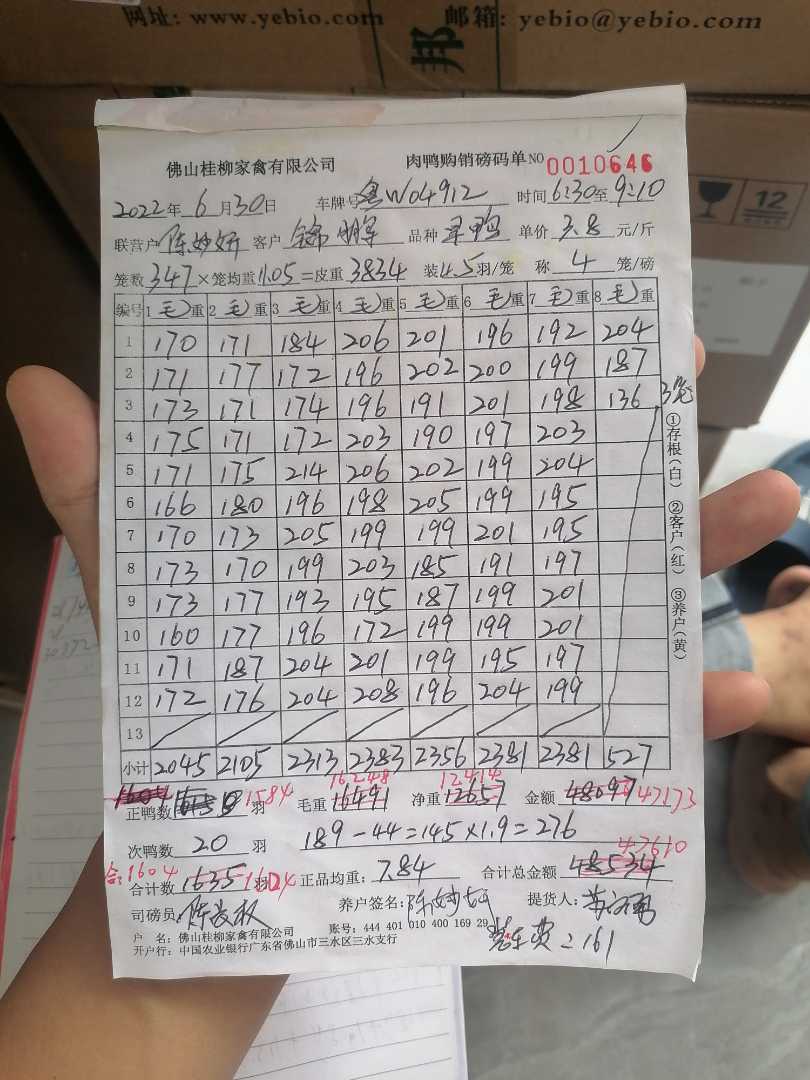 网址: www.yebio.com 邮箱: yebio@yebio.com
邦
12
佛山桂柳家禽有限公司 肉鸭购销磅码单 NO 0010646
2022年 6月30日 车牌号 粤W04912 时间 6:30至 9:10
联营户 陈妙妍 客户 品种 单价 3.8 元/斤
笼数 347 × 笼均重 11.05 = 皮重 3834 装 4.5 羽/笼 称 4 笼/磅
编号 1毛重 2毛重 3毛重 4毛重 5毛重 6毛重 7毛重 8毛重
1 170 171 184 206 201 196 192 204
2 171 177 172 196 202 200 199 187
3 173 171 174 196 191 201 198 136 3笼
4 175 171 172 203 190 197 203
5 171 175 214 206 202 199 204
6 166 180 196 198 205 199 195
7 170 173 205 199 199 201 195
8 173 170 199 203 185 191 197
9 173 177 193 195 187 199 201
10 160 177 196 172 199 199 201
11 171 187 204 201 199 195 197
12 172 176 204 208 196 204 199
13
小计 2045 2105 2313 2383 2356 2381 2381 527
①存根(白) ②客户(红) ③养户(黄)
16248 12414
正鸭数 1584 羽 毛重 16491 净重 12657 金额 48097 47173
次鸭数 20 羽 189-44=145×1.9=276
47610
合:1604
合计数 1635 羽 1604 正品均重: 7.84 合计总金额 48534
司磅员: 养户签名: 陈妙妍 提货人:
户 名: 佛山桂柳家禽有限公司 账号: 444 401 010 400 169 29
开户行: 中国农业银行广东省佛山市三水区三水支行
装车费=161